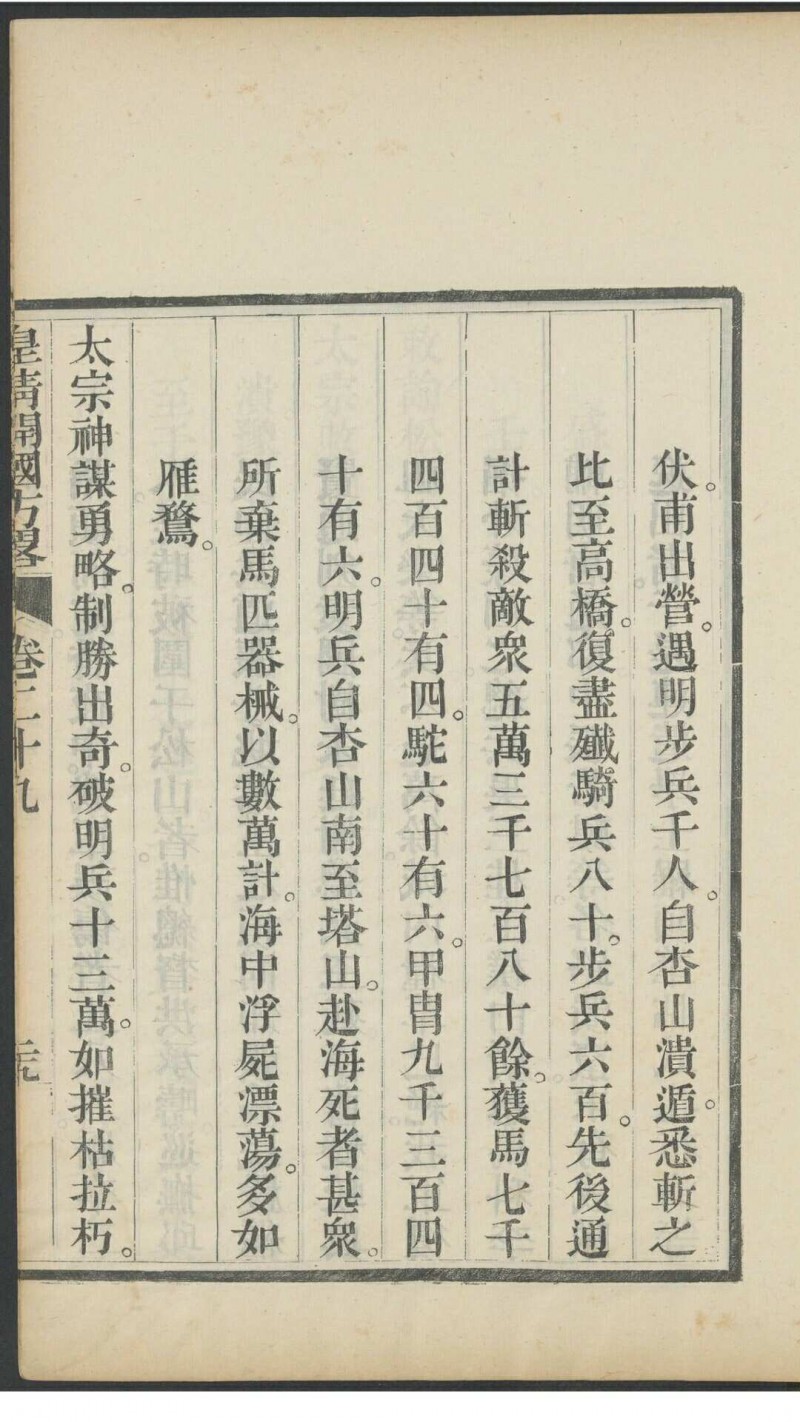 伏。甫出營。遇明步兵千人。自杏山潰遁。悉斬之
比至高橋。復盡殲騎兵八十。步兵六百。先後通
計斬殺敵衆五萬三千七百八十餘。獲馬七千
四百四十有四。駝六十有六。甲冑九千三百四
十有六。明兵自杏山南至塔山。赴海死者甚衆。
所棄馬匹器械。以數萬計。海中浮屍漂蕩。多如
雁鶩。
太宗神謀勇略。制勝出奇。破明兵十三萬。如摧枯拉朽。
皇清開國方略 卷二十九